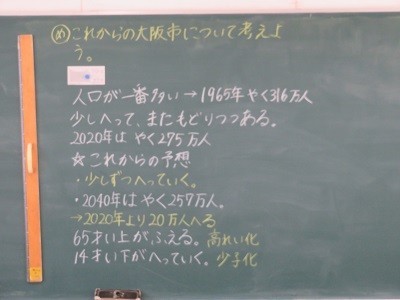 め これからの大阪市について考えよ
う。
人口が一番多い→1965年やく316万人
少しへって、またもどりつつある。
2020年は やく275万人
☆これからの予想
・少しずつへっていく。
・2040年は やく257万人。
→2020年より20万人へる
65才い上がふえる。高れい化
14才い下がへっていく。少子化